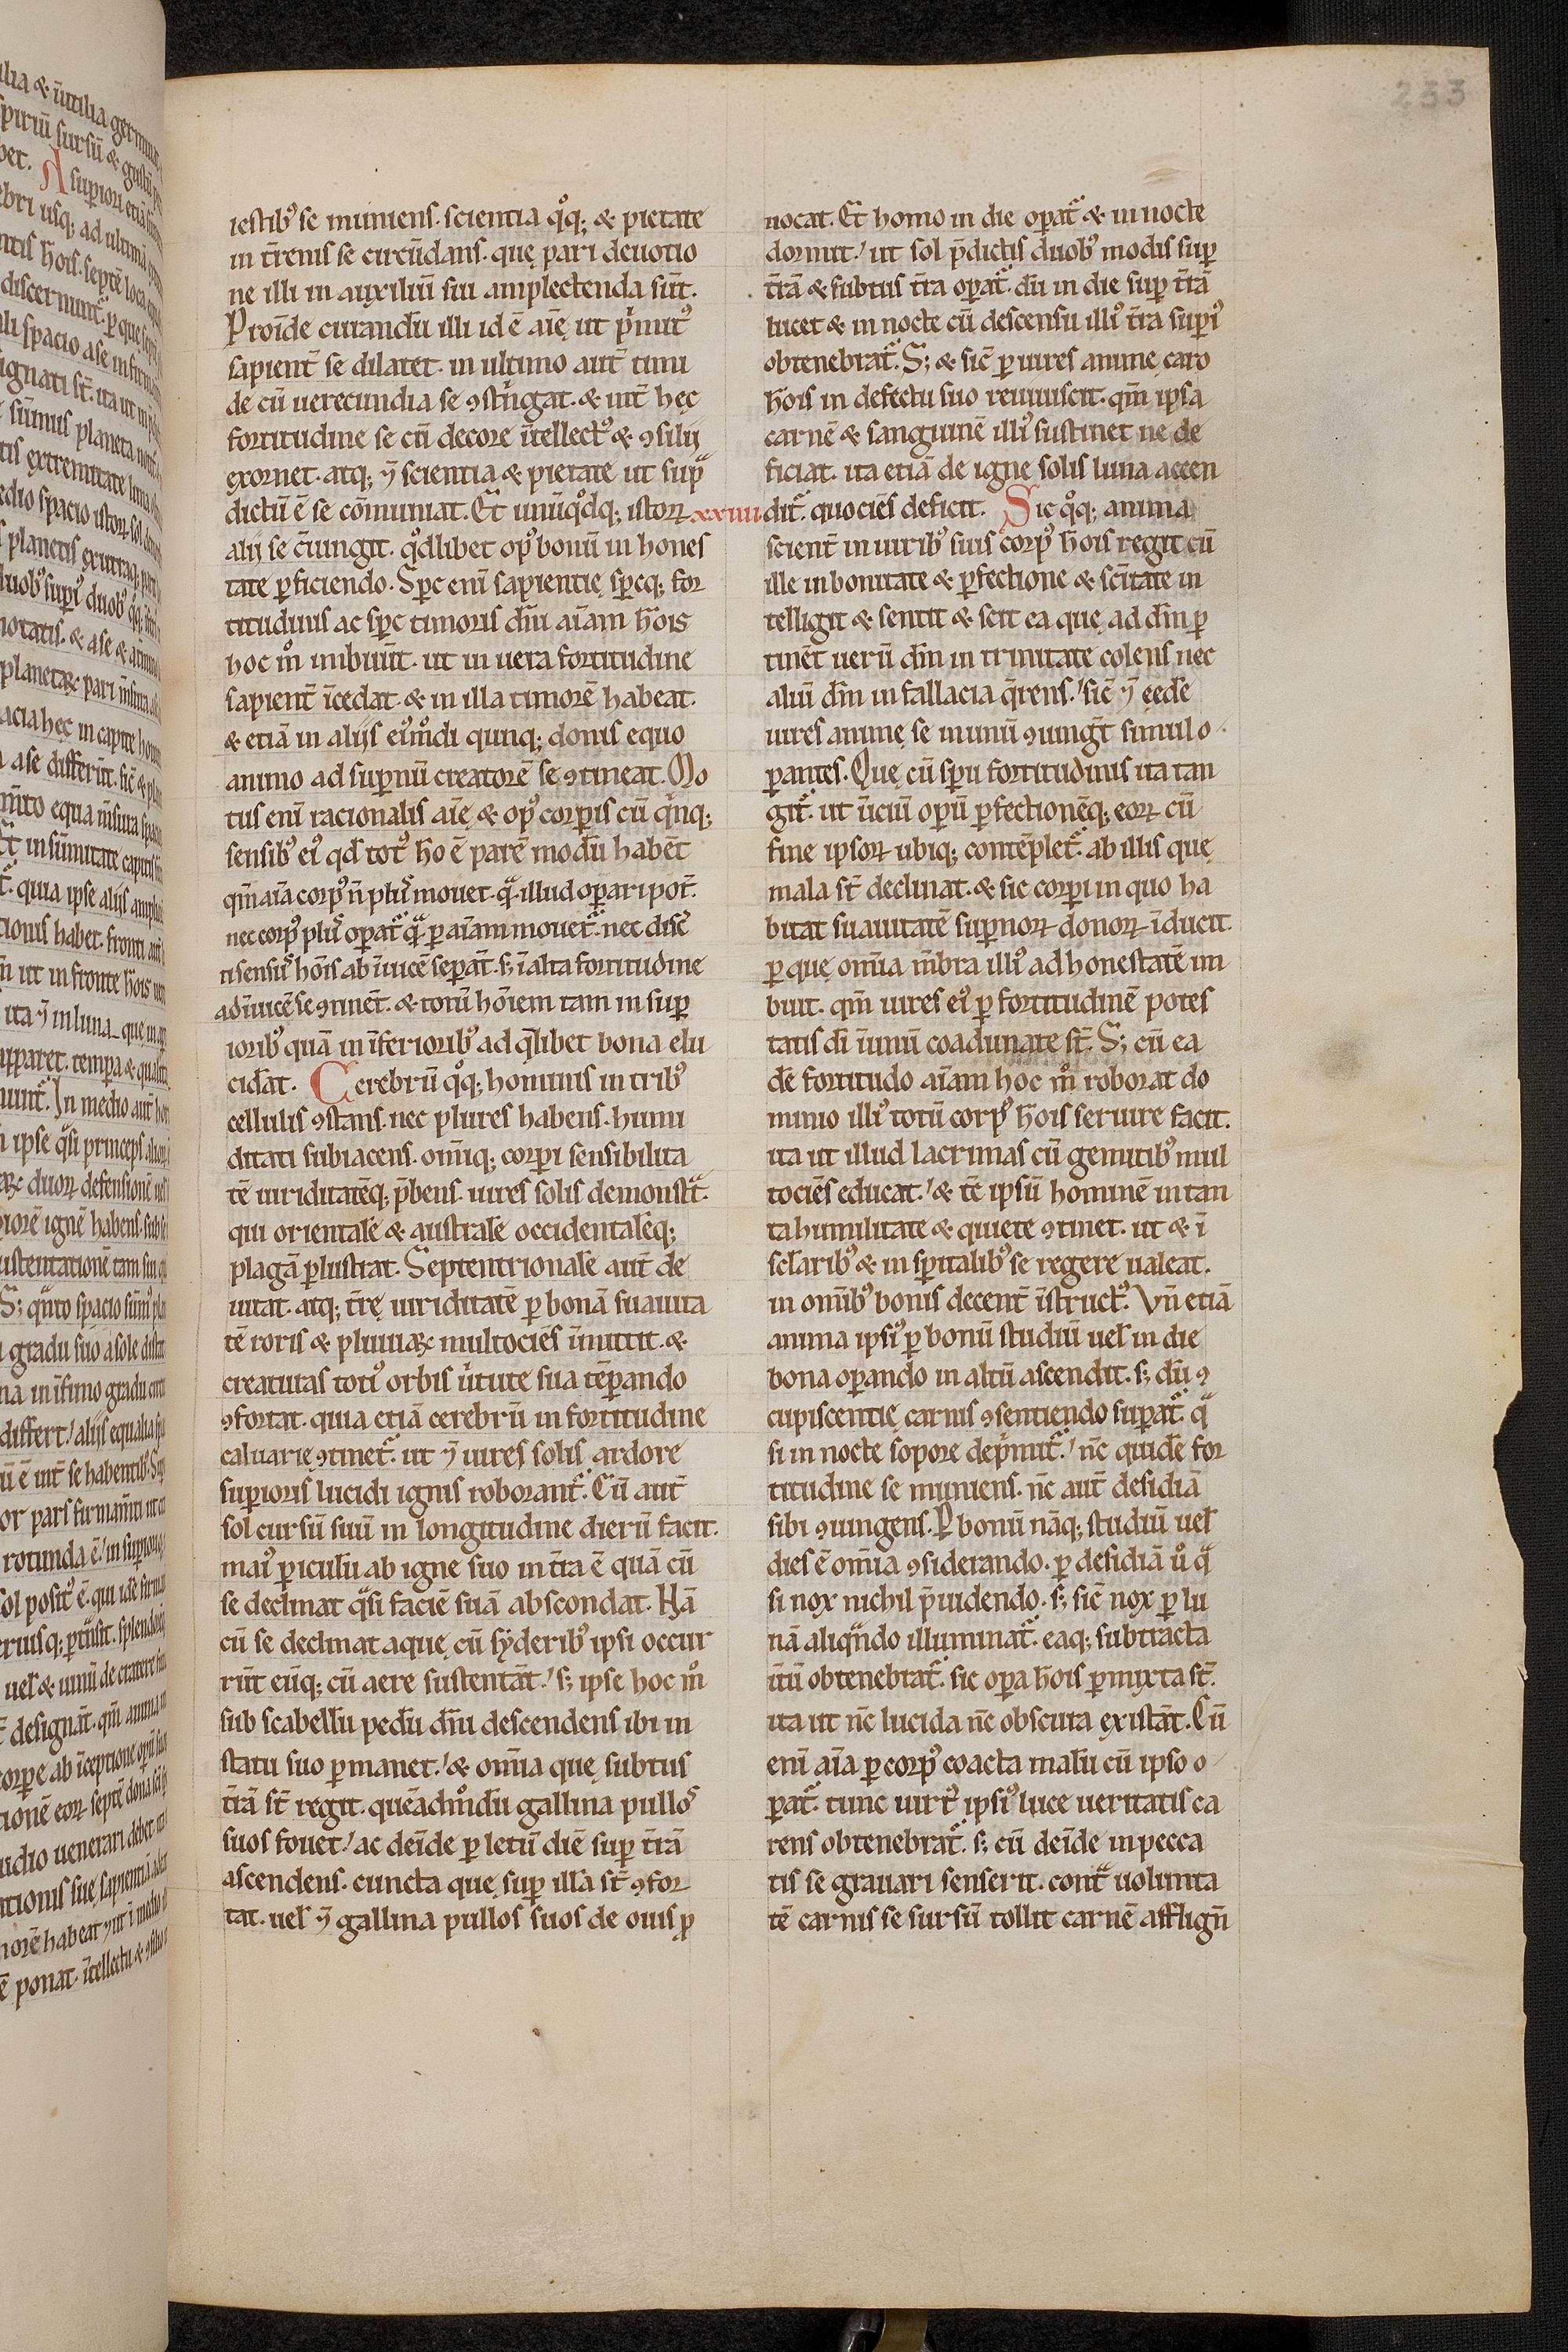 233
iestib᷒ se muniens. scientia qͦq; & pietate
in t̄renis se circūdans. quę pari deuotio
ne illi in auxiliū sui amplectenda sūt.
Proīde curandū illi id ē aīę ut pͥmit᷒
sapient̄ se dilatet. in ultimo aut̄ timi
de cū uerecundia se ꝯstͥngat. & int̄ hęc
fortitudine se cū decore ītellect᷒ & ꝯsilij
exornet. atq; ꝯ scientia & pietate ut supͣ
dictū ē se cōmuniat. Et unūqͦdq; istoꝝ
alij se c̄iungit. qͦdlibet op᷒ bonū in hones
tate ꝑficiendo. Spc enī sapientię spcq; for
titudinis ac spc timoris dn̄i aīam hōis
hoc mͦ imbuūt. ut in uera fortitudine
sapient̄ īcedat. & in illa timorē habeat.
& etiā in alijs ei᷒mͦdi quinq; donis equo
animo ad suꝑnū creatorē se ꝯtineat. Mo
tus enī racionalis aīę & op᷒ corꝑis cū qͥnq;
sensib᷒ ei᷒ qd tot᷒ hō ē parē modū habēt
qm̄ aīa corp᷒ n̄ pl᷒ mouet. qͣ illud oꝑari pot̄.
nec corp᷒ pl᷒ oꝑat᷑ qͣ ꝑ aīam mouet᷑. nec disc̄
ti sensus hōis ab īuicē seꝑat̄. s; ī alta fortitudine
ad īuicē se ꝯtinēt. & totū hōiem tam in suꝑ
iorib᷒ quā in īferiorib᷒ ad qͥlibet bona elu
cidat. Cerebrū qͦq; hominis in trib᷒
cellulis ꝯstans. nec plures habens. humi
ditati subiacens. omīq; corꝑi sensibilita
tē uiriditatēq; p̄bens. uires solis demonstͣt.
qui orientalē & australē occidentalēq;
plagā ꝑlustrat. Septentrionalē aut̄ de
uitat. atq; t̄rę uiriditatē ꝑ bonā suauita
tē roris & pluuiaꝝ multociēs īmittit. &
creaturas toti᷒ orbis ūtute sua tēꝑando
ꝯfortat. quia etiā cerebrū in fortitudine
caluarię ꝯtinet᷑. ut ꝯ uires solis ardore
suꝑioris lucidi ignis roborant᷑. Cū aut̄
sol cursū suū in longitudine dierū facit.
mai᷒ ꝑiculū ab igne suo in t̄ra ē quā cū
se declinat qͣsi faciē suā abscondat. Nā
cū se declinat aquę cū syderib᷒ ipsi occur
rūt eūq; cū aere sustentāt. s; ipse hoc mͦ
sub scabellū pedū dn̄i descendens ibi in
statu suo ꝑmanet. & om̄ia quę subtus
t̄rā st̄ regit. quēadmͦdū gallina pullos
suos fouet. ac deīde ꝑ letū diē suꝑ t̄rā
ascendens. cuncta quę suꝑ illā st̄ ꝯfor
tat. uel ꝯ gallina pullos suos de ouis ꝓ
uocat. Et homo in die oꝑat᷑ & in nocte
dormit. ut sol p̄dictis duob᷒ modis suꝑ
t̄rā & subtus t̄rā oꝑat᷑. dū in die suꝑ t̄rā
lucet & in nocte cū descensu illi᷒ t̄ra suꝑi᷒
obtenebrat᷑. S; & sic̄ ꝑ uires animę caro
hōis in defectu suo reuiuiscit. qm̄ ipsa
carnē & sanguinē illi᷒ sustinet ne de
ficiat. ita etiā de igne solis luna accen
xxiiii dit᷑. quociēs deficit. Sic qͦq; anima
scient̄ in uirib᷒ suis corp᷒ hōis regit cū
ille in bonitate & ꝑfectione & sc̄itate in
telligit & sentit & scit ea quę ad dm̄ ꝑ
tinēt uerū dm̄ in trinitate colens nec
aliū dm̄ in fallacia qͣrens. sic̄ ꝯ eędē
uires animę se inunū ꝯiungt̄ simul o
ꝑantes. Quę cū sp̄u fortitudinis ita tan
git᷑. ut īiciū opū ꝑfectionēq; eoꝝ cū
fine ipsoꝝ ubiq; contēplet᷑. ab illis quę
mala st̄ declinat. & sic corꝑi in quo ha
bitat suauitatē suꝑnoꝝ donoꝝ īducit.
ꝑ quę om̄ia mb̄ra illi᷒ ad honestatē im
buit. qm̄ uires ei᷒ ꝑ fortitudinē potes
tatis dī īunū coadunate st̄. S; cū ea
dē fortitudo aīam hoc mͦ roborat do
minio illi᷒ totū corp᷒ hōis seruire facit.
ita ut illud lacrimas cū gemitib᷒ mul
tociēs educat. & tē ipsū hominē in tan
ta humilitate & quiete ꝯtinet. ut & ī
sclarib᷒ & in spitalib᷒ se regere ualeat.
in omīb᷒ bonis decent̄ īstruct᷒. Vn̄ etiā
anima ipsi᷒ ꝑ bonū studiū uel in die
bona oꝑando in altū ascendit. s; dū ꝯ
cupiscentię carnis ꝯsentiendo suꝑat᷑. qͣ
si in nocte sopore depͥmit᷑. nc̄ quidē for
titudine se muniens. nc̄ aut̄ desidiā
sibi ꝯiungens. Ꝑ bonū nāq; studiū uel
dies ē om̄ia ꝯsiderando. ꝑ desidiā uͦ qͣ
si nox nichil p̄uidendo. s; sic̄ nox ꝑ lu
nā aliqͣndo illuminat᷑. eaq; subtracta
itū obtenebrat᷑. sic oꝑa hōis ꝑmixta st̄.
ita ut nc̄ lucida nc̄ obscura existāt. Cū
enī aīa ꝑ corp᷒ coacta malū cū ipso o
ꝑat᷑. tunc uirt᷒ ipsi᷒ luce ueritatis ca
rens obtenebrat᷑. s; cū deīde in pecca
tis se grauari senserit. contͣ uolunta
tē carnis se sursū tollit carnē afflign̄